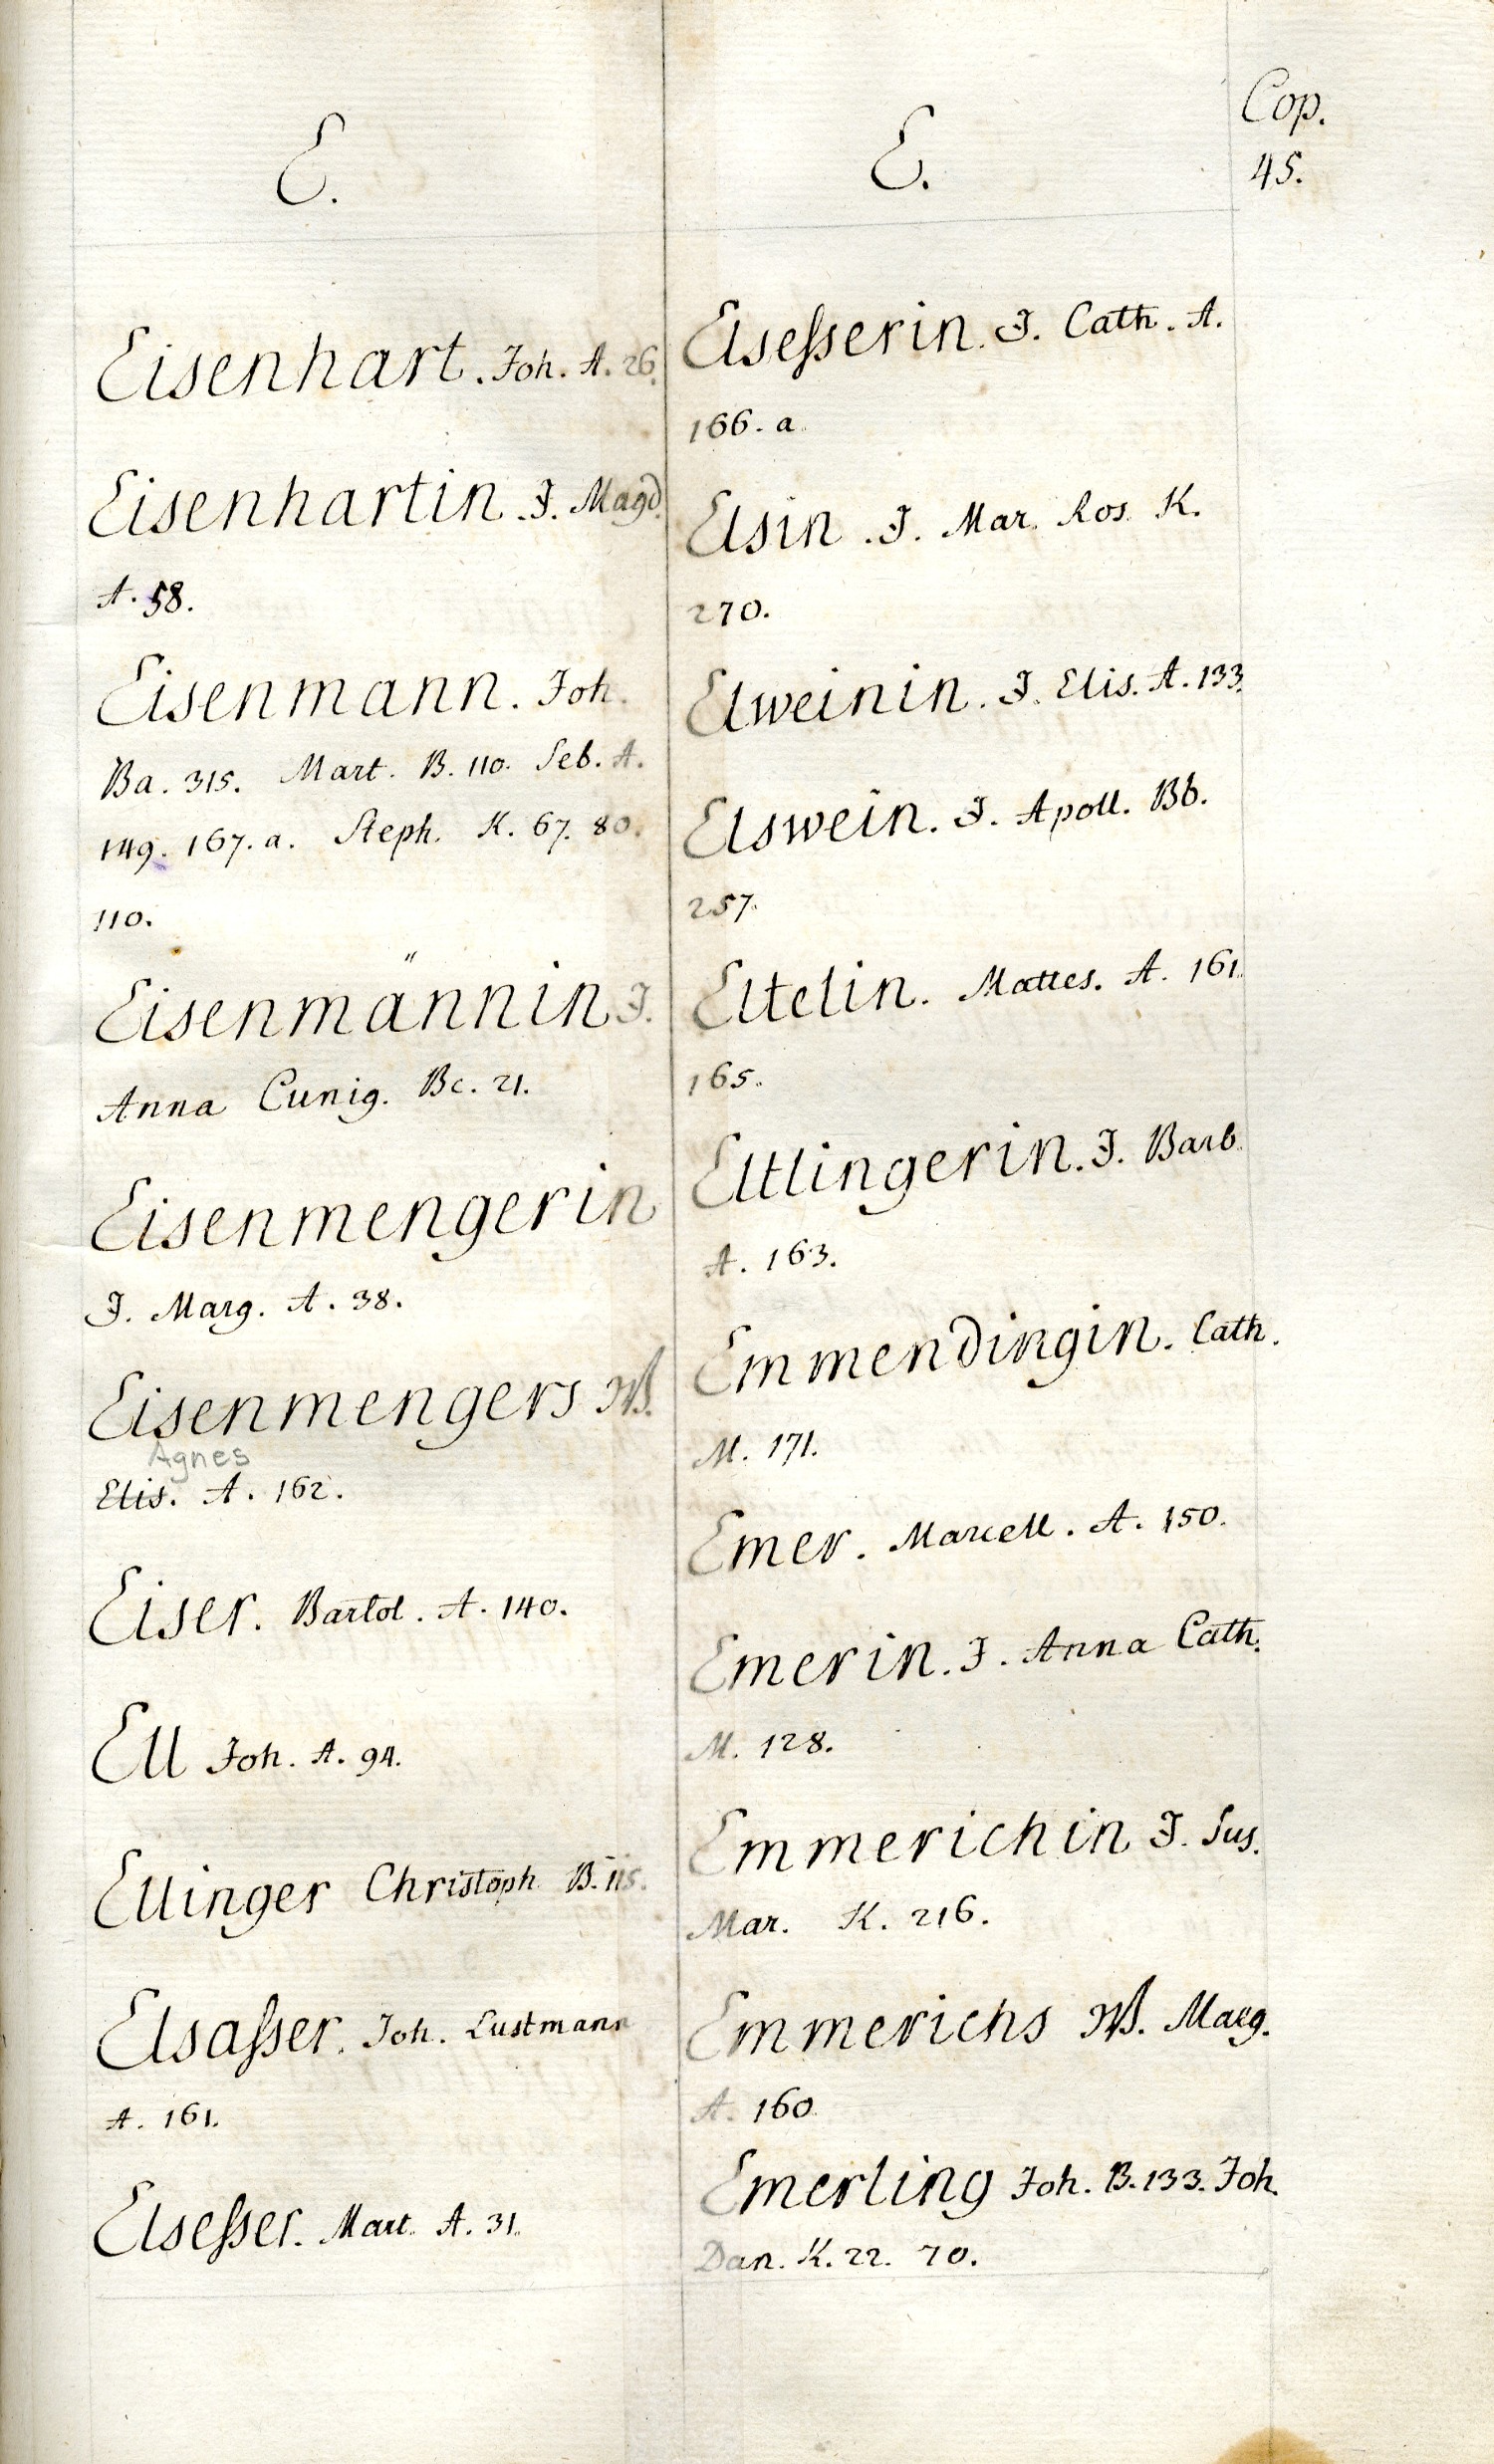 Cop.
45.
E.
Eisenhart. Joh. A. 26.
Eisenhartin. J. Magd.
A. 58.
Eisenmann. Joh.
Ba. 315. Mart. B. 110. Seb. A.
149. 167. a. Steph. K. 67. 80.
110.
Eisenmännin J.
Anna Cunig. Bc. 21.
Eisenmengerin
J. Marg. A. 38.
Eisenmengers W.
Agnes
Elis. A. 162.
Eiser. Bartol. A. 140.
Ell Joh. A. 94.
Ellinger Christoph B. 115.
Elsaſser. Joh. Lustmann
A. 161.
Elseſser. Mart. A. 31.
E.
Elseſserin. J. Cath. A.
166. a.
Elsin. J. Mar. Ros. K.
270.
Elweinin. J. Elis. A. 133.
Elswein. J. Apoll. Bb.
257.
Eltelin. Mattes. A. 161.
165.
Eltlingerin. J. Barb.
A. 163.
Emmendingin. Cath.
M. 171.
Emer. Marcell. A. 150.
Emerin. J. Anna Cath.
M. 128.
Emmerichin J. Sus.
Mar. K. 216.
Emmerichs W. Marg.
A. 160.
Emerling Joh. B. 133. Joh.
Dan. K. 22. 70.